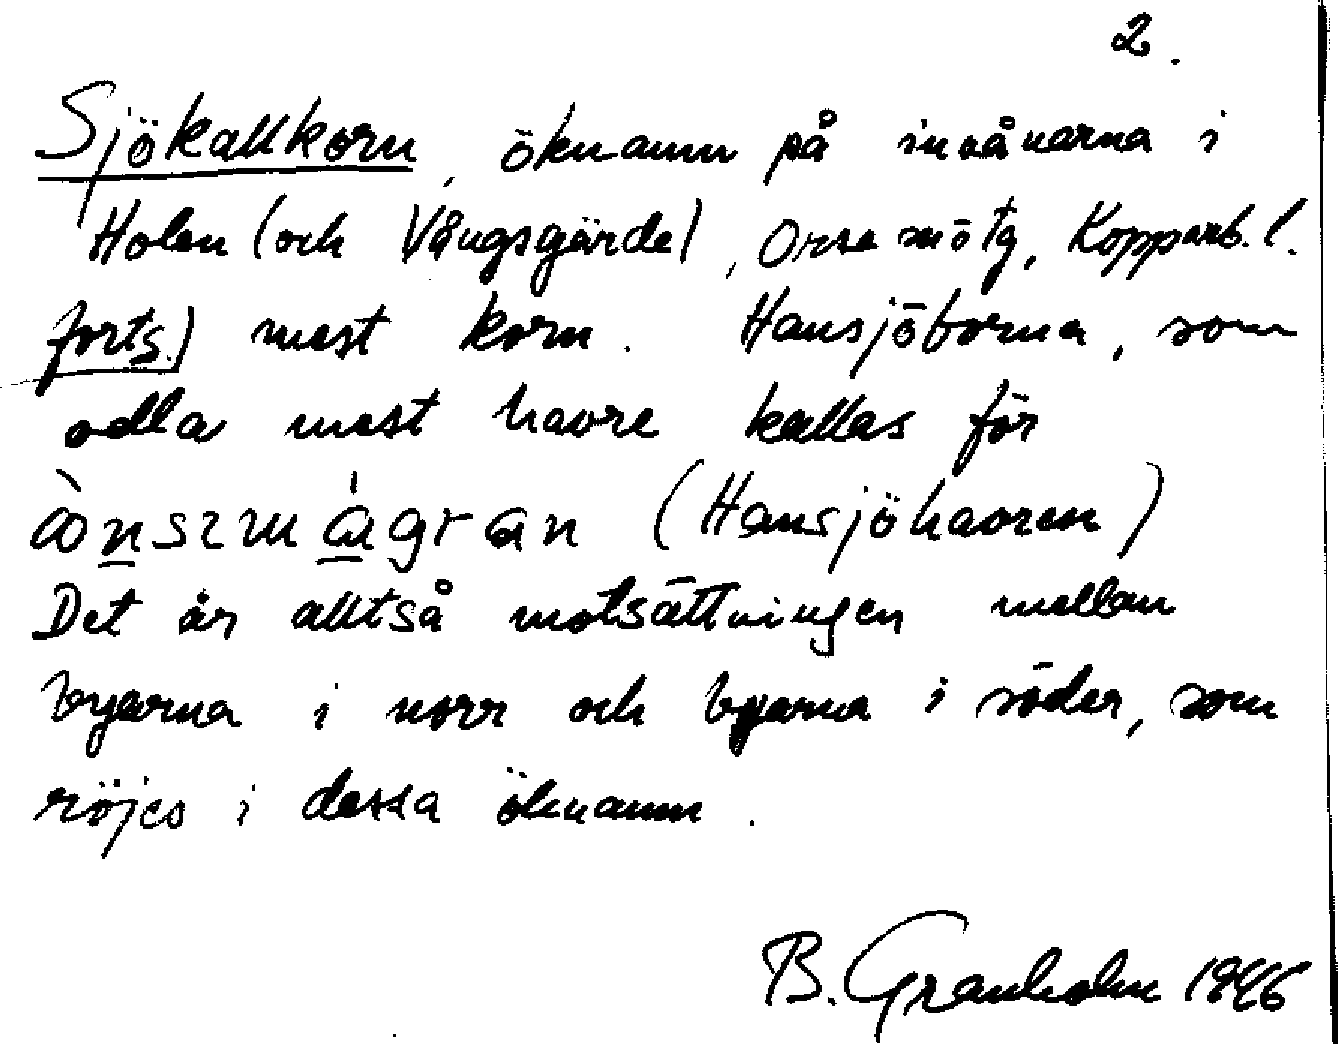 2.
Sjökallkorn, öknamn på invånarna i
Holen (och Vångsgärde), Orsa Kopparb. l.
forts.) mest korn. Hansjöborna, som
odla mest havre kallas för
(Hansjöhavren)
Det är alltså motsättningen mellan
byarna i norr och byarna i söder, som
röjes i dessa öknamn.
B. Granholm 1946